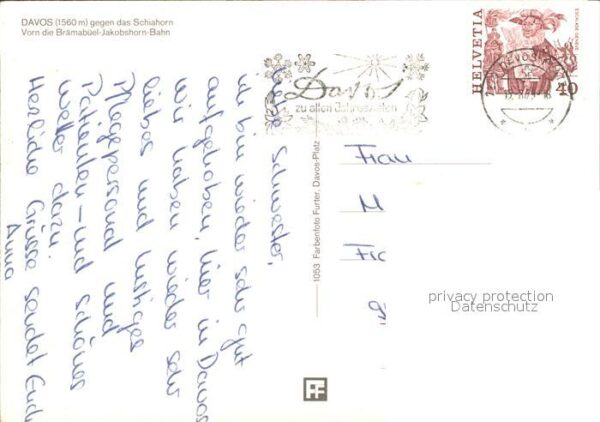 DAVOS (1560 m) gegen das Schiahorn
Vorn die Brämabüel-Jakobshorn-Bahn
Liebe Schwester,
ich bin wieder sehr gut
aufgehoben, hier in Davos
Wir haben wieder sehr
liebes und lustiges
Pflegepersonal und
Patienten - und schönes
wetter dazu.
Herzliche Grüsse sendet Euch
Anna
1053 Farbenfoto Furter, Davos-Platz
Davos
zu allen Jahreszeiten
HELVETIA
ESCALADE GENÈVE
40
Frau
M
Fic
privacy protection
Datenschutz